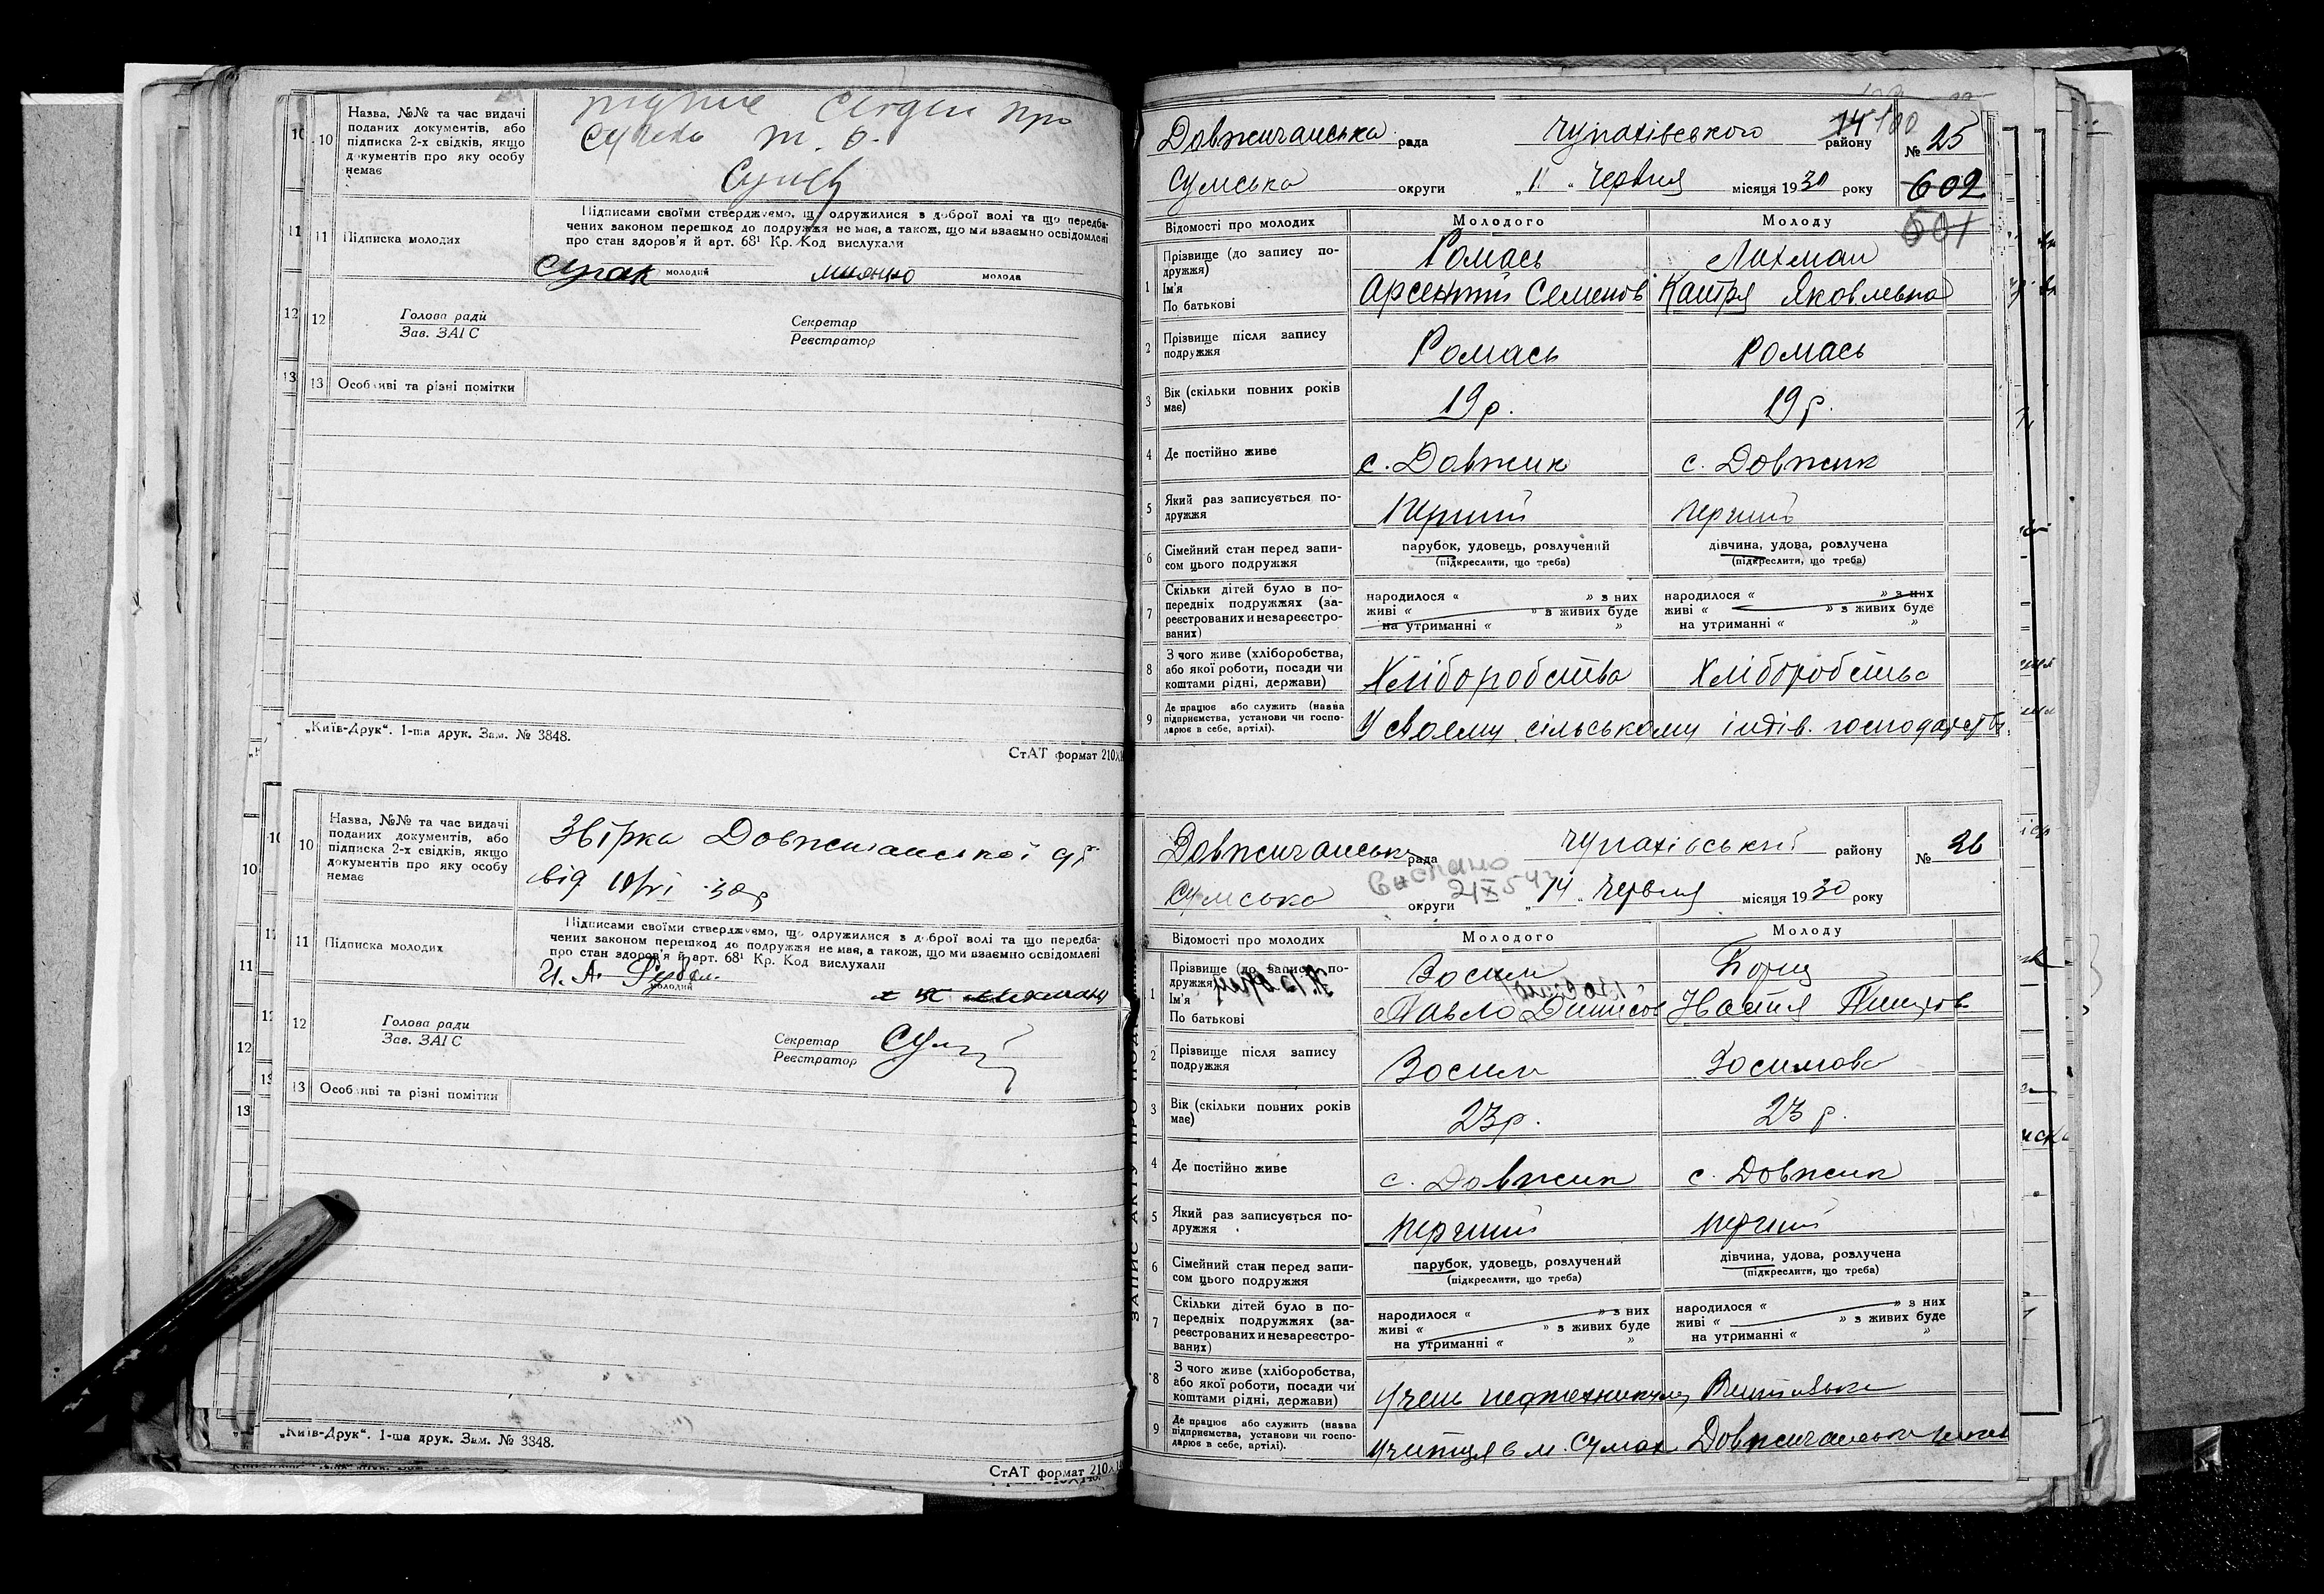 10 Назва, №№ та час видачі
поданих документів, або
підписка 2-х свідків, якщо
документів про яку особу
немає
11 Підписка молодих
Підписами своїми стверджуємо, що одружилися з доброї волі та що передба-
чених законом перешкод до подружжя не має, а також, що ми взаємно освідомлені
про стан здоров'я й арт. 68¹ Кр. Код вислухали
молодий молода
12 Голова ради
Зав. ЗАГС
Секретар
Реєстратор
13 Особливі та різні помітки
„Київ-Друк“. 1-ша друк. Зам. № 3848.
СтАТ формат 210х
10 Назва, №№ та час видачі
поданих документів, або
підписка 2-х свідків, якщо
документів про яку особу
немає
від
11 Підписка молодих
Підписами своїми стверджуємо, що одружилися з доброї волі та що передба-
чених законом перешкод до подружжя не має, а також, що ми взаємно освідомлені
про стан здоров'я й арт. 68¹ Кр. Код вислухали
молодий
12 Голова ради
Зав. ЗАГС
Секретар
Реєстратор
13 Особливі та різні помітки
„Київ-Друк“. 1-ша друк. Зам. № 3848.
СтАТ формат 210х
Довжичанська рада Чупахівського району № 25
Сумська округи „11“ Червня місяця 1930 року 602
601
Відомості про молодих Молодого Молоду
1 Прізвище (до запису по-
дружжя) Ромась Лихман
Ім'я
По батькові Арсентий Семенов Катря Яковлевна
2 Прізвище після запису
подружжя Ромась Ромась
3 Вік (скільки повних років
має) 19 р. 19 р.
4 Де постійно живе с. Довжик с. Довжик
5 Який раз записується по-
дружжя Перший перший
6 Сімейний стан перед запи-
сом цього подружжя
парубок, удовець, розлучений дівчина, удова, розлучена
(підкреслити, що треба) (підкреслити, що треба)
7 Скільки дітей було в по-
передніх подружжях (за-
реєстрованих и незареєстро-
ваних)
народилося « » з них народилося « » з них
живі « » з живих буде живі « » з живих буде
на утриманні « » на утриманні « »
8 З чого живе (хліборобства,
або якої роботи, посади чи
коштами рідні, держави) Хліборобства Хліборобства
9 Де працює або служить (назва
підприємства, установи чи госпо-
дарює в себе, артілі). У своему сільському індів. господарстві.
Довжичанська рада Чупахівський району № 26
Сумська округи „14“ Червня місяця 1930 року
Відомості про молодих Молодого Молоду
1 Прізвище (до запису по-
дружжя) Зосим
Ім'я
По батькові Павло Динисов Настя
2 Прізвище після запису
подружжя Зосим Зосимова
3 Вік (скільки повних років
має) 23 р. 23 р.
4 Де постійно живе с. Довжик с. Довжик
5 Який раз записується по-
дружжя перший перший
6 Сімейний стан перед запи-
сом цього подружжя
парубок, удовець, розлучений дівчина, удова, розлучена
(підкреслити, що треба) (підкреслити, що треба)
7 Скільки дітей було в по-
передніх подружжях (за-
реєстрованих и незареєстро-
ваних)
народилося « » з них народилося « » з них
живі « » з живих буде живі « » з живих буде
на утриманні « » на утриманні « »
8 З чого живе (хліборобства,
або якої роботи, посади чи
коштами рідні, держави) Учень педтехникум,
9 Де працює або служить (назва
підприємства, установи чи госпо-
дарює в себе, артілі). учитця в м. Сумах Довжичанська